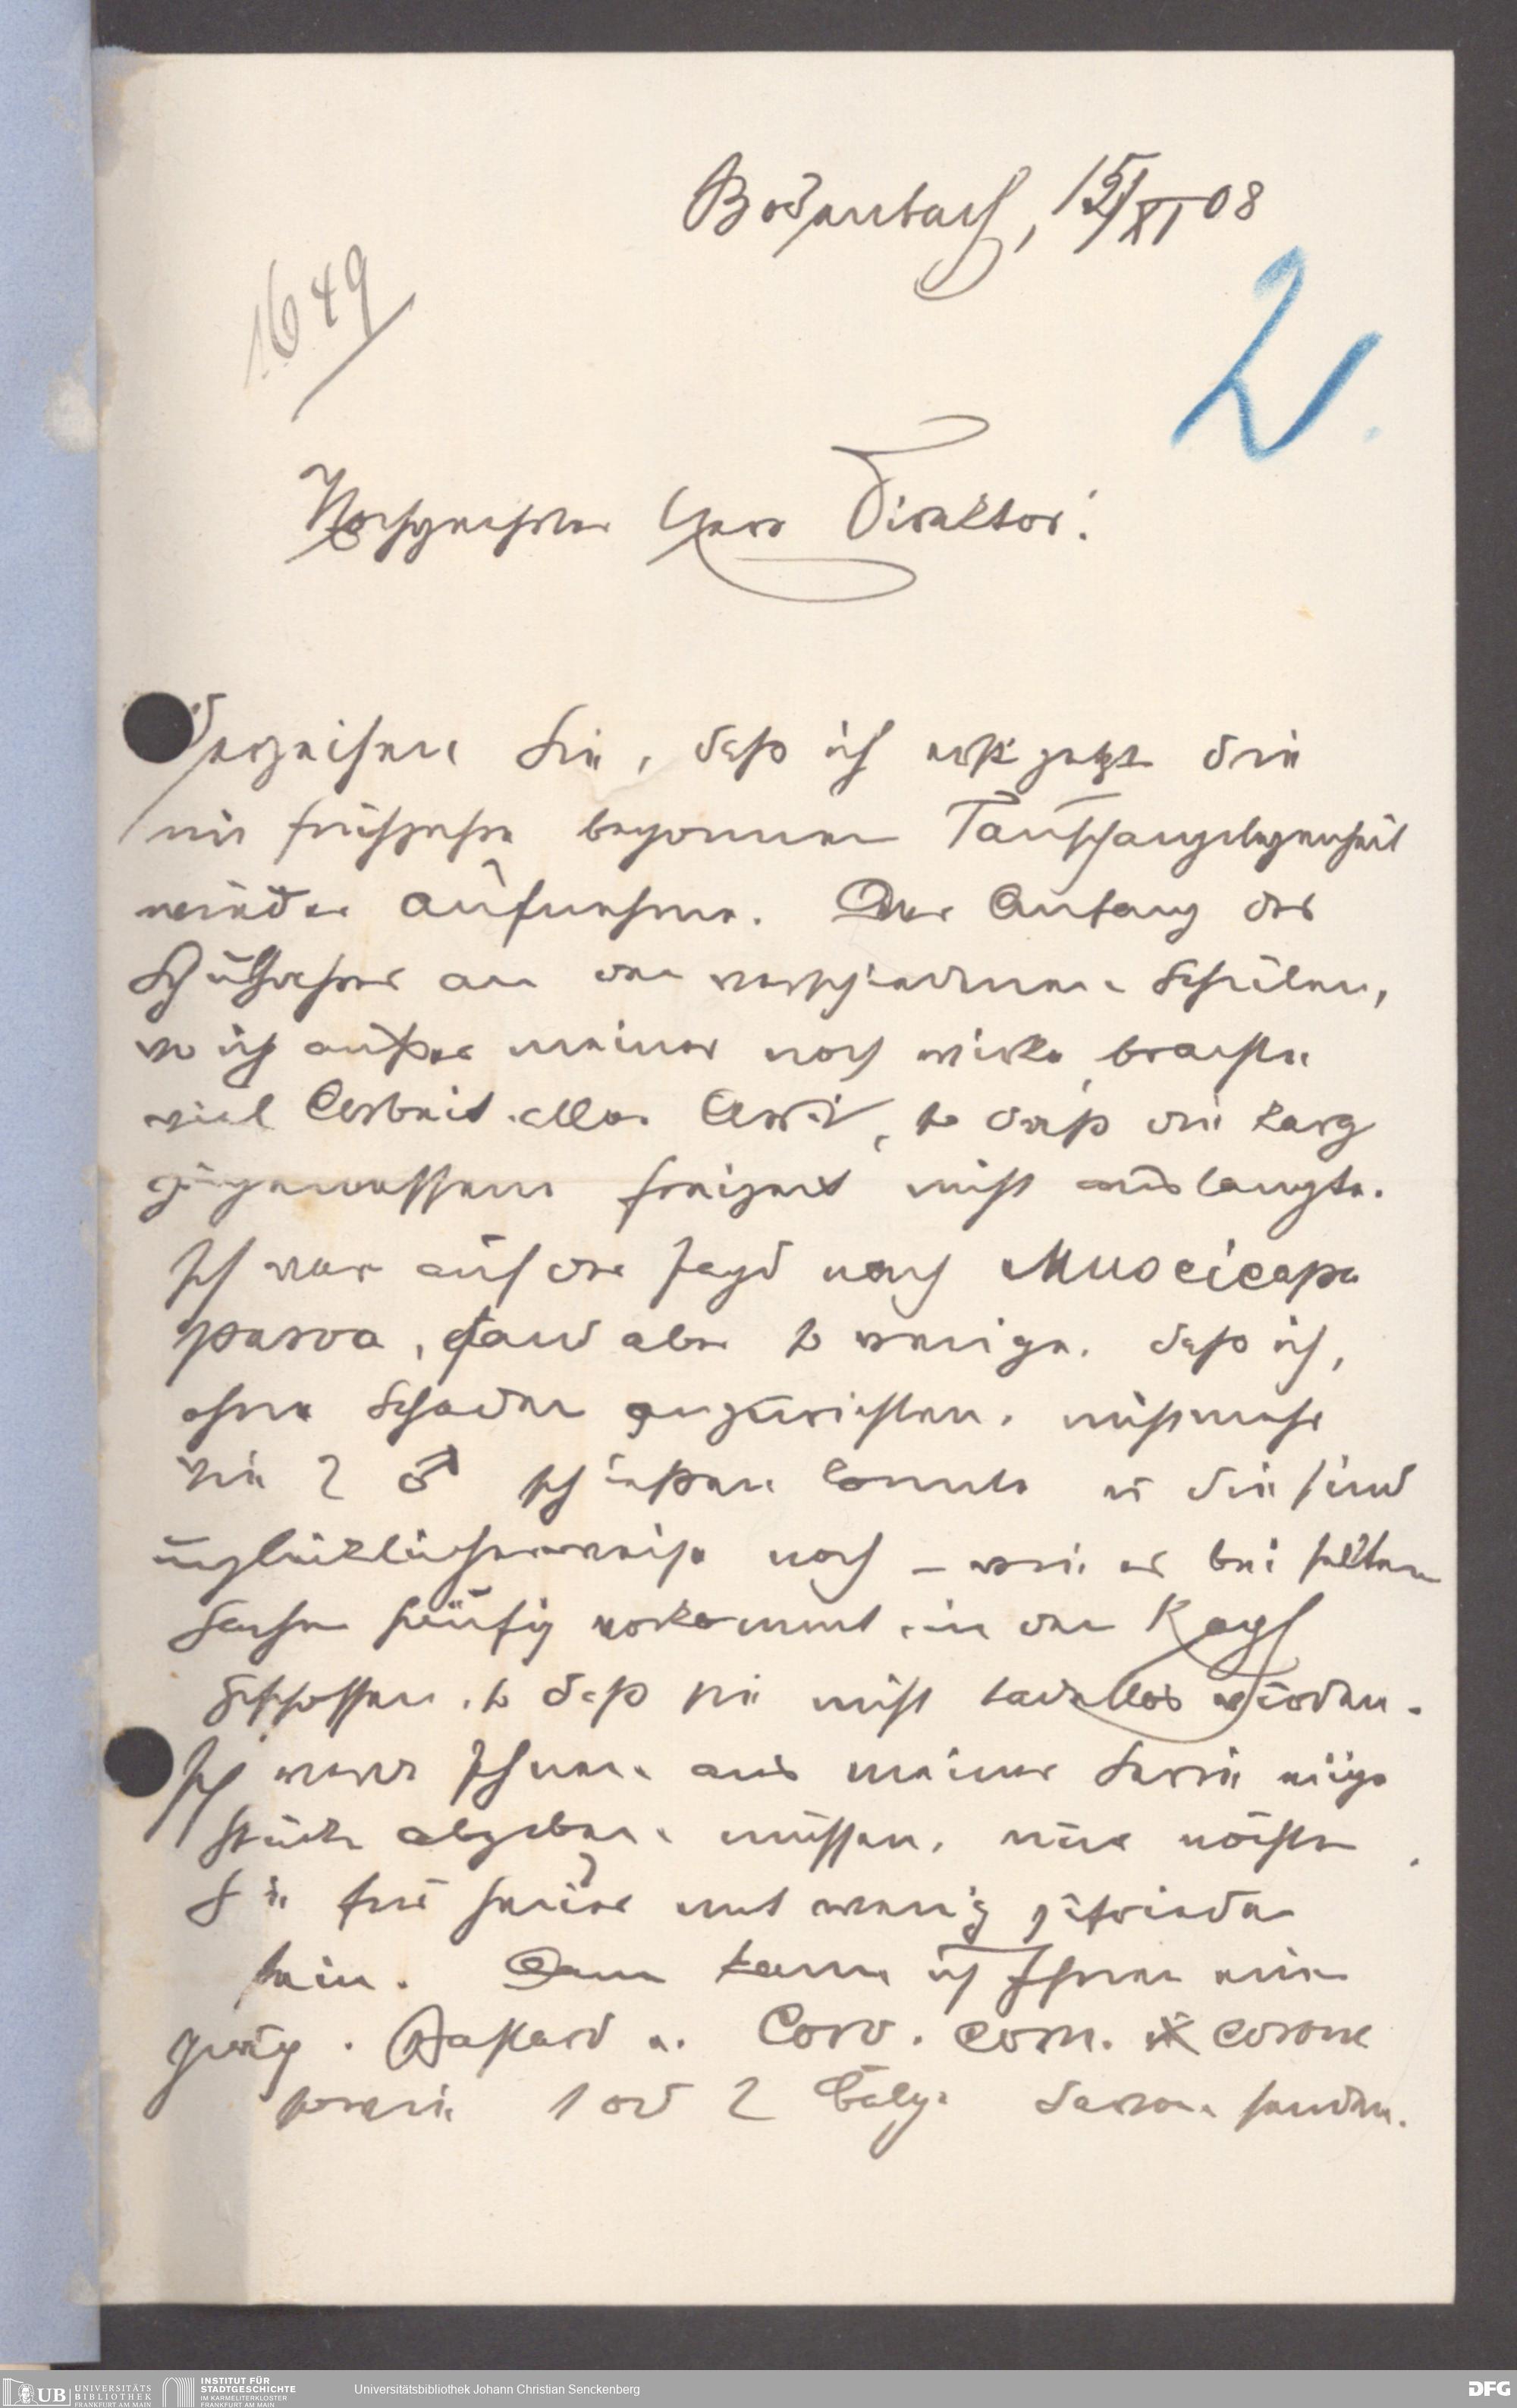 Bodenbach, 15/XI 08
1649
2.
Hochgeehrter Herr Direktor!
Verzeihen Sie, daß ich erst jetzt die
im Frühjahre begonnene Tauschangelegenheit
wieder aufnehme. Der Anfang des
Schuljahres an den verschiedenen Schulen,
wo ich außer meiner noch wirke, brachte
viel Arbeit aller Art, so daß die karg
zugemessene Freizeit nicht auslangte.
Ich war auf der Jagd nach Muscicapa
parva, fand aber so wenige, daß ich,
ohne Schaden anzurichten, nicht mehr
wie 2 ♂ schießen konnte u die sind
unglücklicherweise noch – wie es bei selten
Sachen häufig vorkommt, in den Kopf
geschossen, so daß sie nicht tadellos würden.
Ich werde Ihnen aus meiner Serie einige
Stücke abgeben müssen, nur möchten
Sie für heuer mit wenig zufrieden
sein. Dann kann ich Ihnen einen
Bastard v. Corv. corn. x corone
sowie 1 od 2 Bälge davon senden.
UB UNIVERSITÄTS BIBLIOTHEK FRANKFURT AM MAIN
INSTITUT FÜR STADTGESCHICHTE IM KARMELITERKLOSTER FRANKFURT AM MAIN
Universitätsbibliothek Johann Christian Senckenberg
DFG